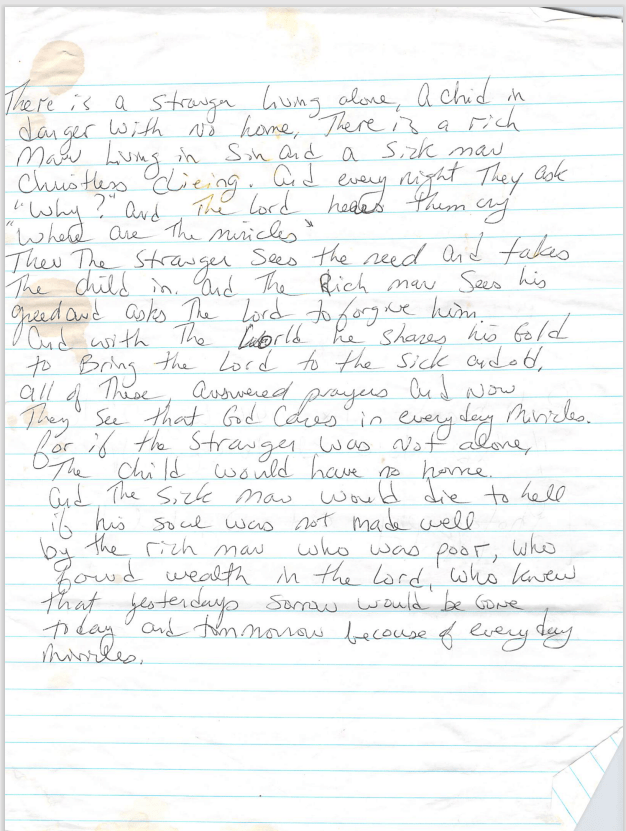 There is a stranger living alone, A chid in
danger with no home, There is a rich
man Living in Sin and a Sick man
Christless dieing. And every night They ask
"Why?" And The Lord heares them cry
"Where are The miricles"
Then The Stranger Sees the need And takes
The child in. And The Rich man Sees his
greed and asks The Lord to forgive him.
And with The World he shares his Gold
to Bring the Lord to the Sick and old,
all of These answered prayers And Now
They See that God Cares in everyday Miricles.
for if the Stranger was Not alone,
The Child would have no home.
And The Sick man would die to hell
if his soul was not made well
by the rich man who was poor, who
found wealth in the Lord, who knew
that yesterdays Sorrow would be Gone
today and tommorrow because of everyday
Miricles.